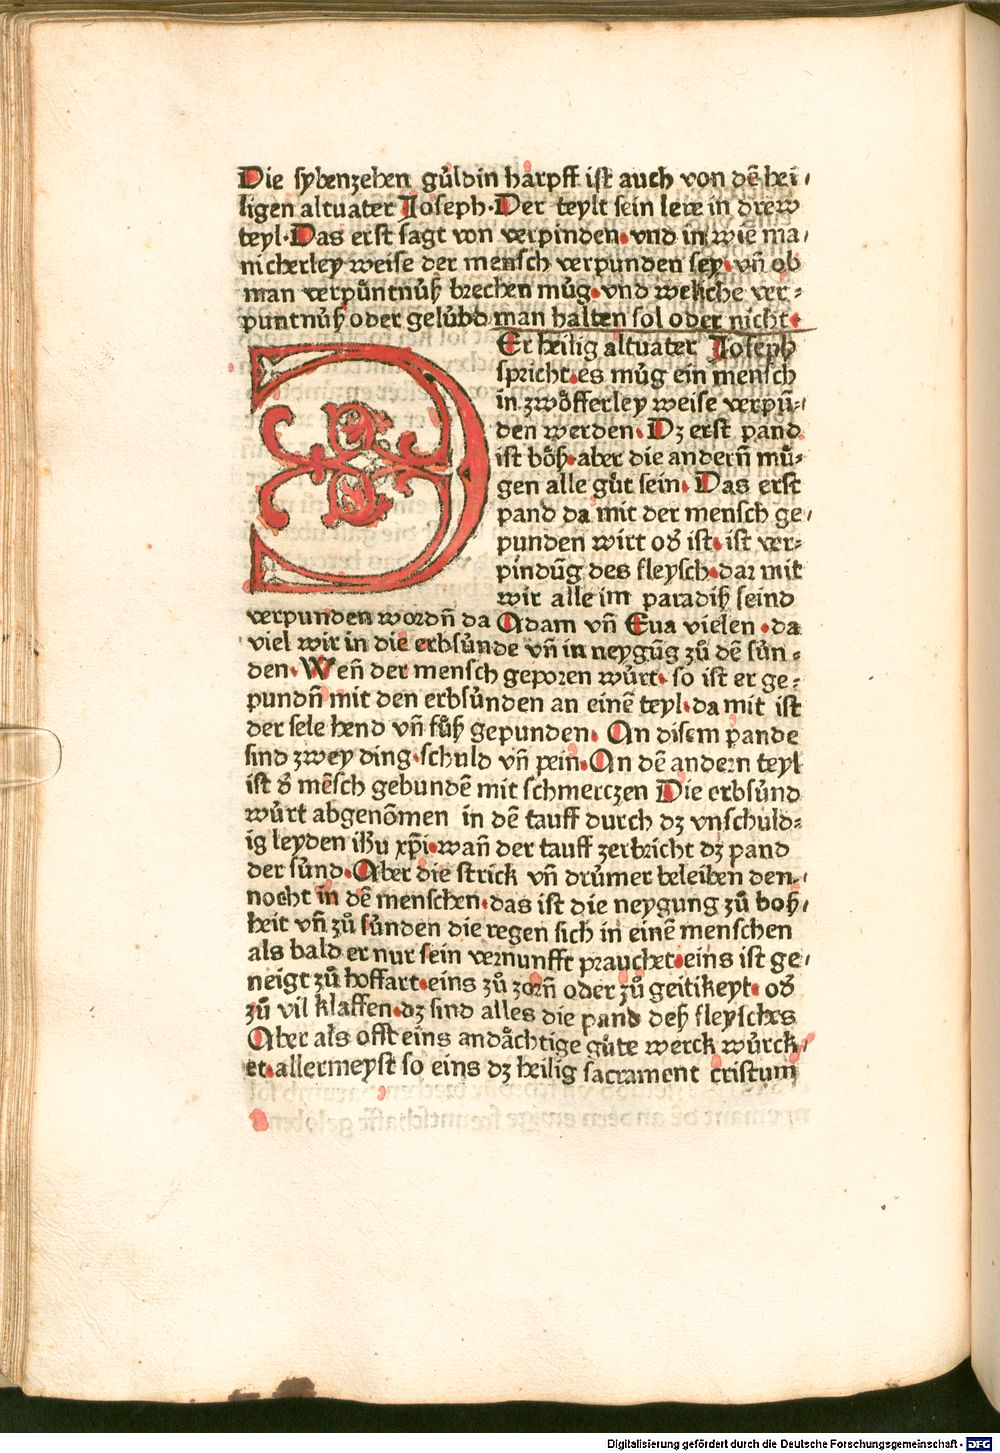 Die sybenzehen gůldin harpff ist auch von dē hei⸗
ligen altuater Joseph. Der teylt sein lere in drew
teyl. Das erst sagt von verpinden. vnd in wie ma⸗
nicherley weise der mensch verpunden sey. vn̄ ob
man verpüntnůß brechen můg. vnd weliche ver⸗
puntnůß oder gelůbd man halten sol oder nicht.
Er heilig altuater Joseph
spricht. es můg ein mensch
in zwőfferley weise verpū⸗
den werden. Dz erst pand
ist bőß. aber die andern̄ mů⸗
gen alle gůt sein. Das erst
pand da mit der mensch ge⸗
punden wirt od̕ ist. ist ver⸗
pindūg des fleysch. dar mit
wir alle im paradiß seind
verpunden wordn̄ da Adam vn̄ Eua vielen. da
viel wir in die erbsůnde vn̄ in neygūg zů dē sůn⸗
den. Wen̄ der mensch geporen wůrt. so ist er ge⸗
pundn̄ mit den erbsůnden an einē teyl. da mit ist
der sele hend vn̄ fůß gepunden. An disem pande
sind zwey ding. schuld vn̄ pein̄. An dē andern teyl
ist d̕ mēsch gebundē mit schmerczen Die erbsůnd
wůrt abgenōmen in dē tauff durch dz vnschuld⸗
ig leyden ihū xp̄i. wan̄ der tauff zerbricht dz pand
der sůnd. Aber die strick vn̄ drůmer beleiben den⸗
nocht in dē menschen. das ist die neygung zů boß⸗
heit vn̄ zů sůnden die regen sich in einē menschen
als bald er nur sein vernunfft prauchet. eins ist ge⸗
neigt zů hoffart. eins zů zorn̄ oder zů geitikeyt. od̕
zů vil klaffen. dz sind alles die pand deß fleysches
Aber als offt eins andåchtige gůte werck wůrck⸗
et. allermeyst so eins dz heilig sacrament cristum
Digitalisierung gefördert durch die Deutsche Forschungsgemeinschaft - DFG